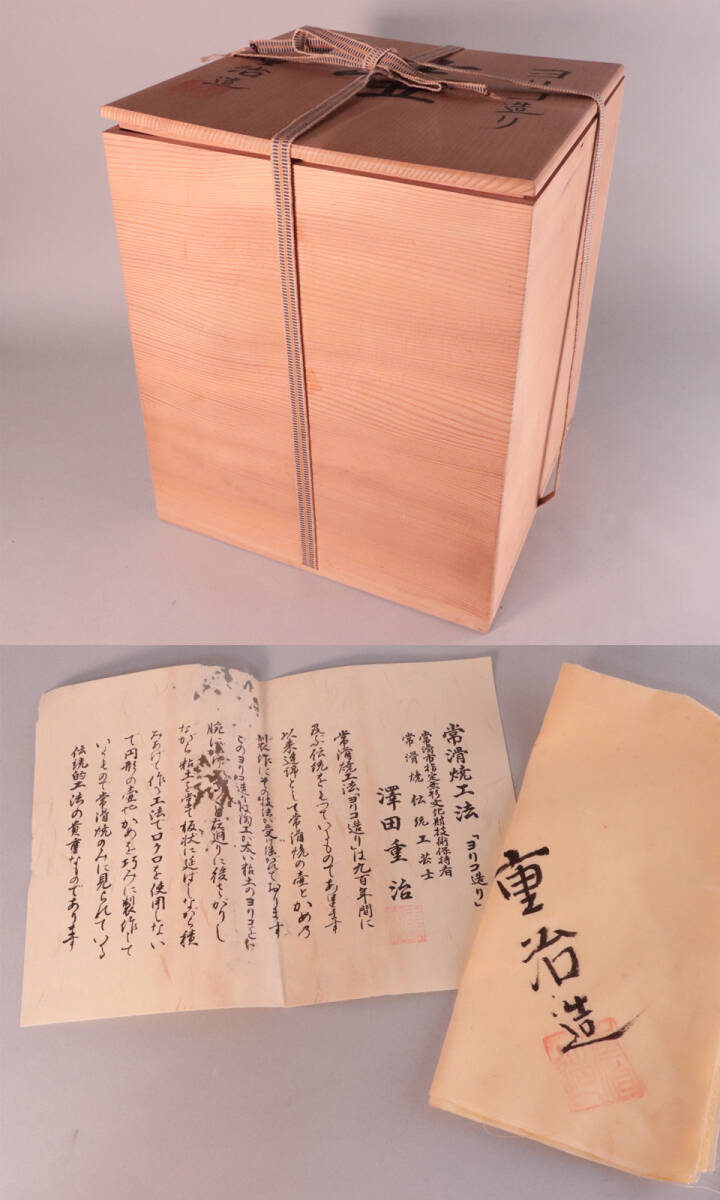 ヨリコ造り
壺
重治造
常滑焼工法 「ヨリコ造り」
常滑市指定無形文化財技術保持者
常滑焼伝統工芸士
澤田重治
常滑焼工法、ヨリコ造りは九百年間に
及ぶ伝統をもっているものであります
以来連綿として常滑焼の壺とかめ乃
製作にその技法が受け継がれております
このヨリコ造りは陶工が太い粘土のヨリコを
腕に 右廻りに後ずさりし
ながら粘土を当て板状に延ばしながら積
みあげて作る工法でロクロを使用しない
で円形の壺やかめを巧みに製作して
いくもので常滑焼のみに見られている
伝統的工法の貴重なものであります
重治造